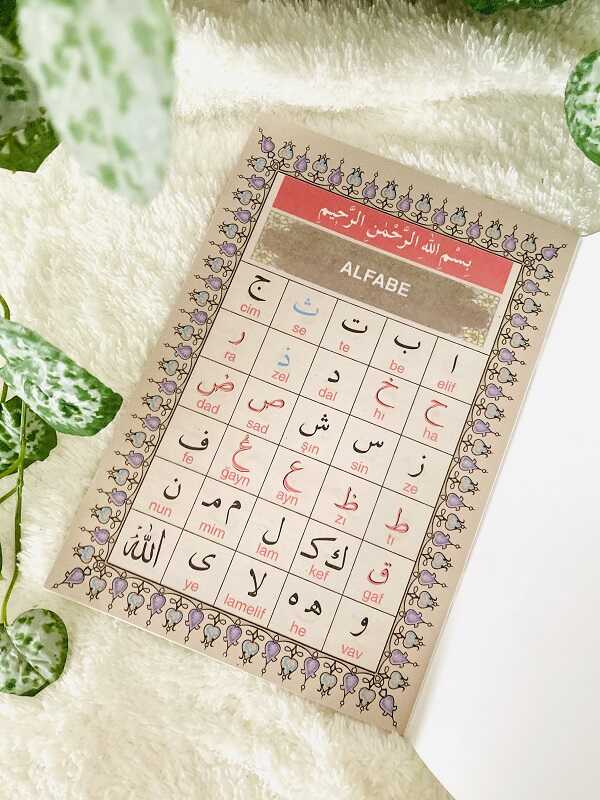 بِسْمِ اللهِ الرَّحْمٰنِ الرَّحِيمِ
ALFABE
ا ب ت ث ج
elif be te se cim
ح خ د ذ ر
ha hı dal zel ra
ز س ش ص ض
ze sin şın sad dad
ط ظ ع غ ف
tı zı ayn ğayn fe
ق ك كـ ل م مـ ن
gaf kef lam mim nun
و ه ه لا ى اللّٰهُ
vav he lamelif ye